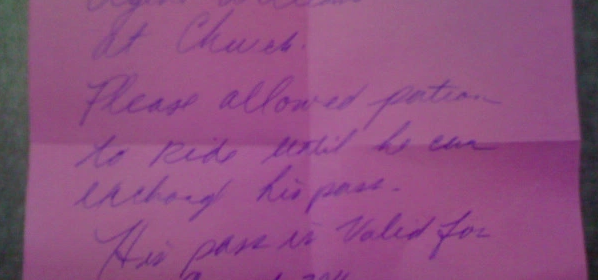 at Church.
Please allowed patron
to Ride until he can
exchang his pass.
His pass is Valid for